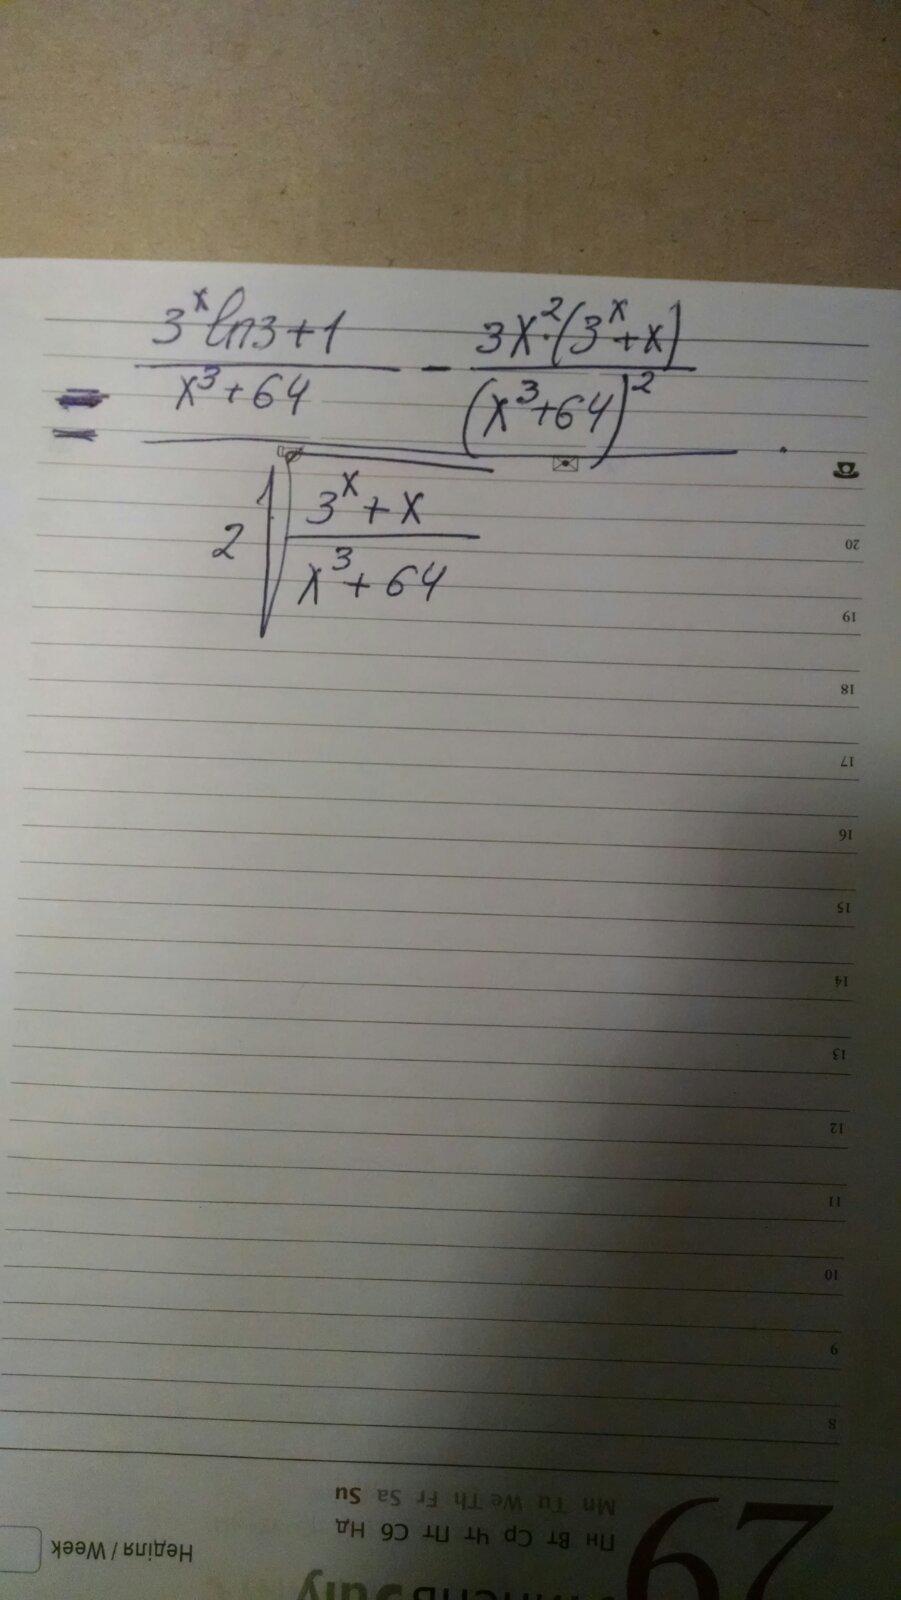 3^x ln3+1 / x^3+64 - 3x^2·(3^x+x) / (x^3+64)^2
=
2 √ 3^x+x / x^3+64
20
19
18
17
16
15
14
13
12
11
10
9
8
Mn Tu We Th Fr Sa Su
Пн Вт Ср Чт Пт Сб Нд
29
Неділя / Week
July